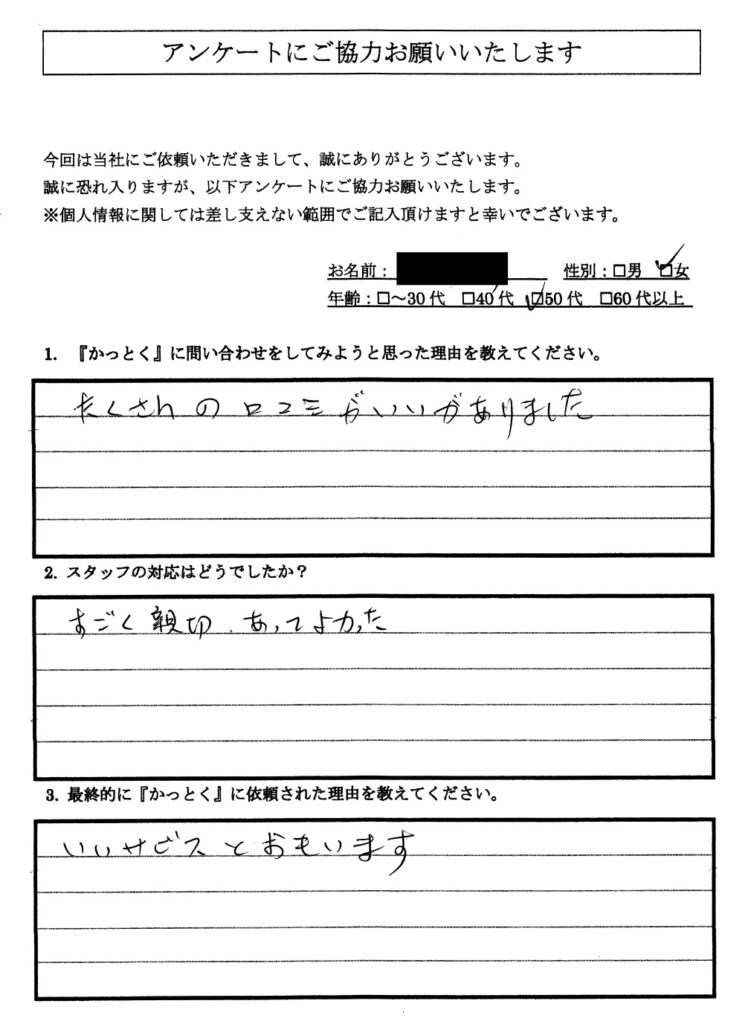 アンケートにご協力お願いいたします
今回は当社にご依頼いただきまして、誠にありがとうございます。
誠に恐れ入りますが、以下アンケートにご協力お願いいたします。
※個人情報に関しては差し支えない範囲でご記入頂けますと幸いでございます。
お名前： 性別：□男 ☑女
年齢：□～30代 □40代 ☑50代 □60代以上
1. 『かっとく』に問い合わせをしてみようと思った理由を教えてください。
たくさんの口コミがいいがありました
2. スタッフの対応はどうでしたか？
すごく親切、あってよかった
3. 最終的に『かっとく』に依頼された理由を教えてください。
いいサビスとおもいます